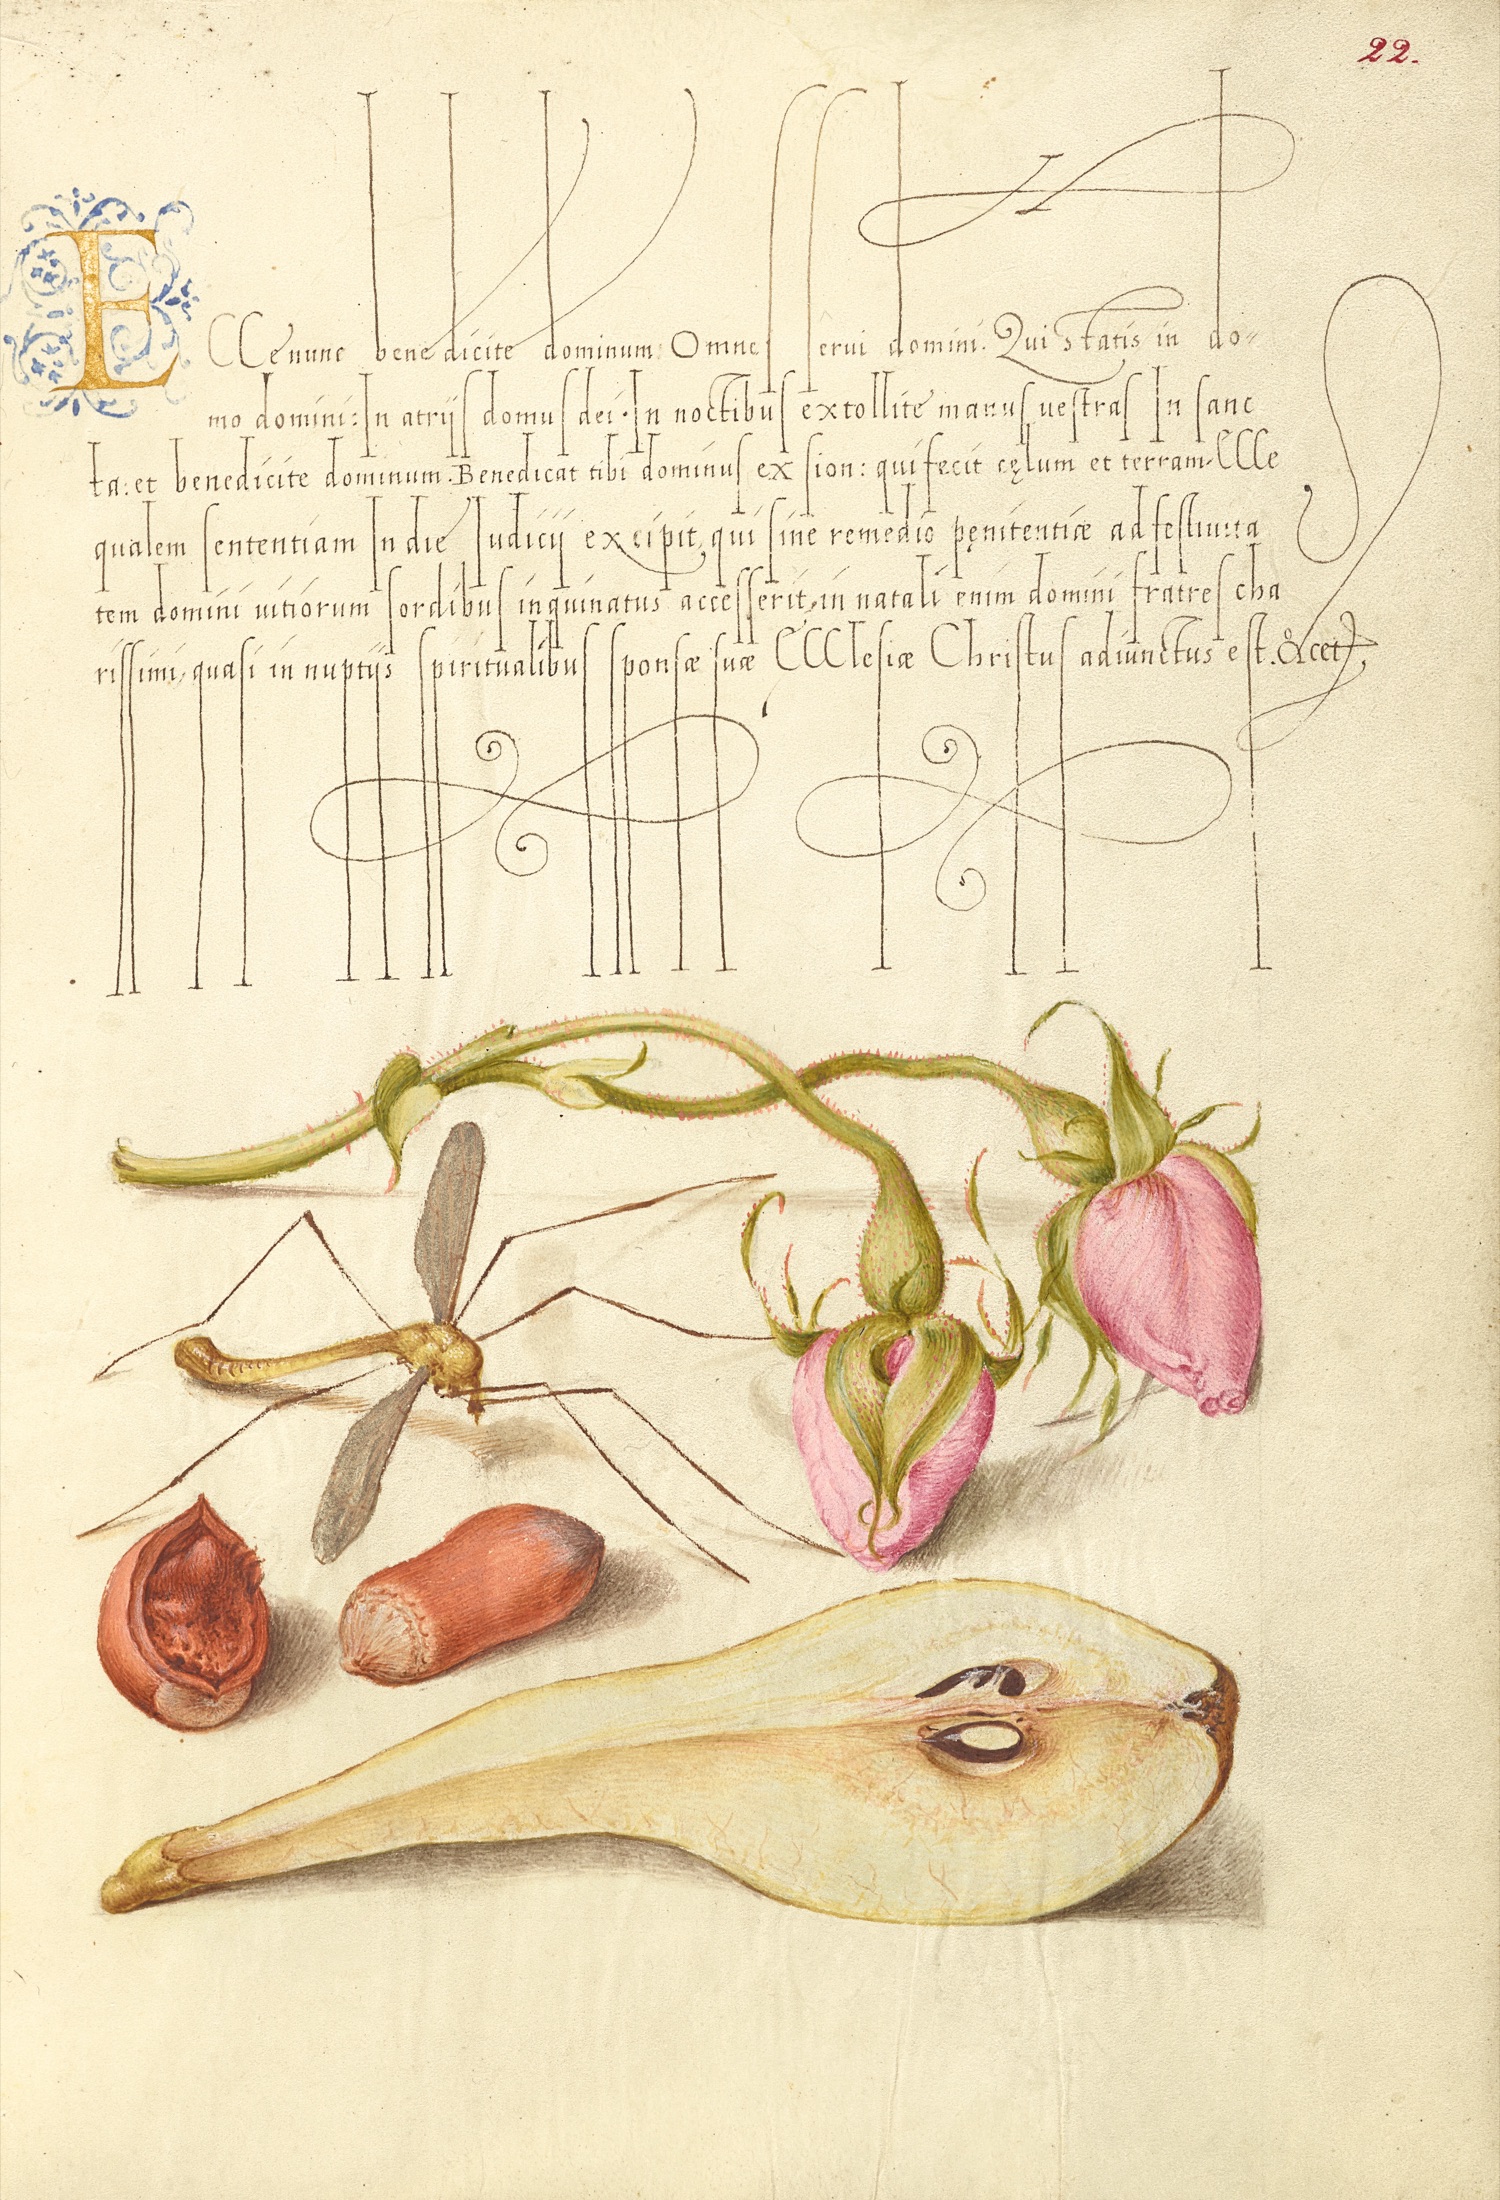 22.
ECCe nunc benedicite dominum: Omnes serui domini. Qui statis in do-
mo domini: In atrijs domus dei. In noctibus extollite manus uestras In sanc
ta: et benedicite dominum. Benedicat tibi dominus ex sion: qui fecit cęlum et terram. CCCe
qualem sententiam In die Iudicij excipit, qui sine remedio pęnitentiæ ad festiuita
tem domini uitiorum sordibus inquinatus accesserit, in natali enim domini fratres cha
rissimi, quasi in nuptijs spiritualibus sponsæ suæ ECCClesiæ Christus adiunctus est. &cet.